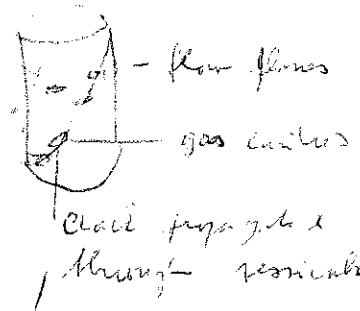 - flow planes
gas cavities
Crack propagate
through vesicules